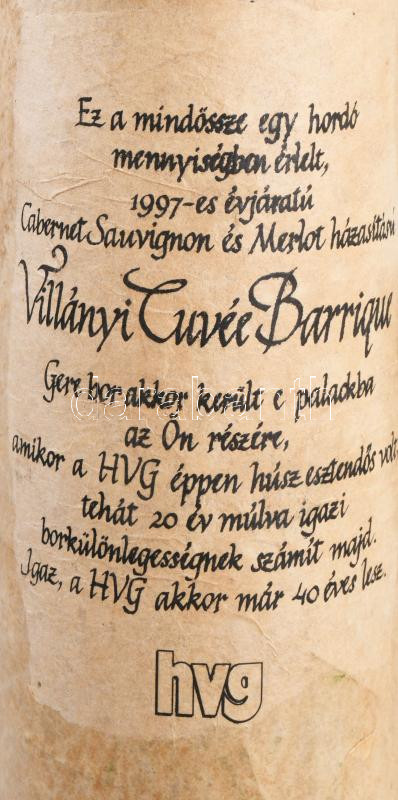 Ez a mindössze egy hordó
mennyiségben érlelt,
1997-es évjáratú
Cabernet Sauvignon és Merlot házasítású
Villányi Cuvée Barrique
Gere bor akkor került e palackba
az Ön részére,
amikor a HVG éppen húsz esztendős volt,
tehát 20 év múlva igazi
borkülönlegességnek számít majd.
Igaz, a HVG akkor már 40 éves lesz.
hvg
darabanth